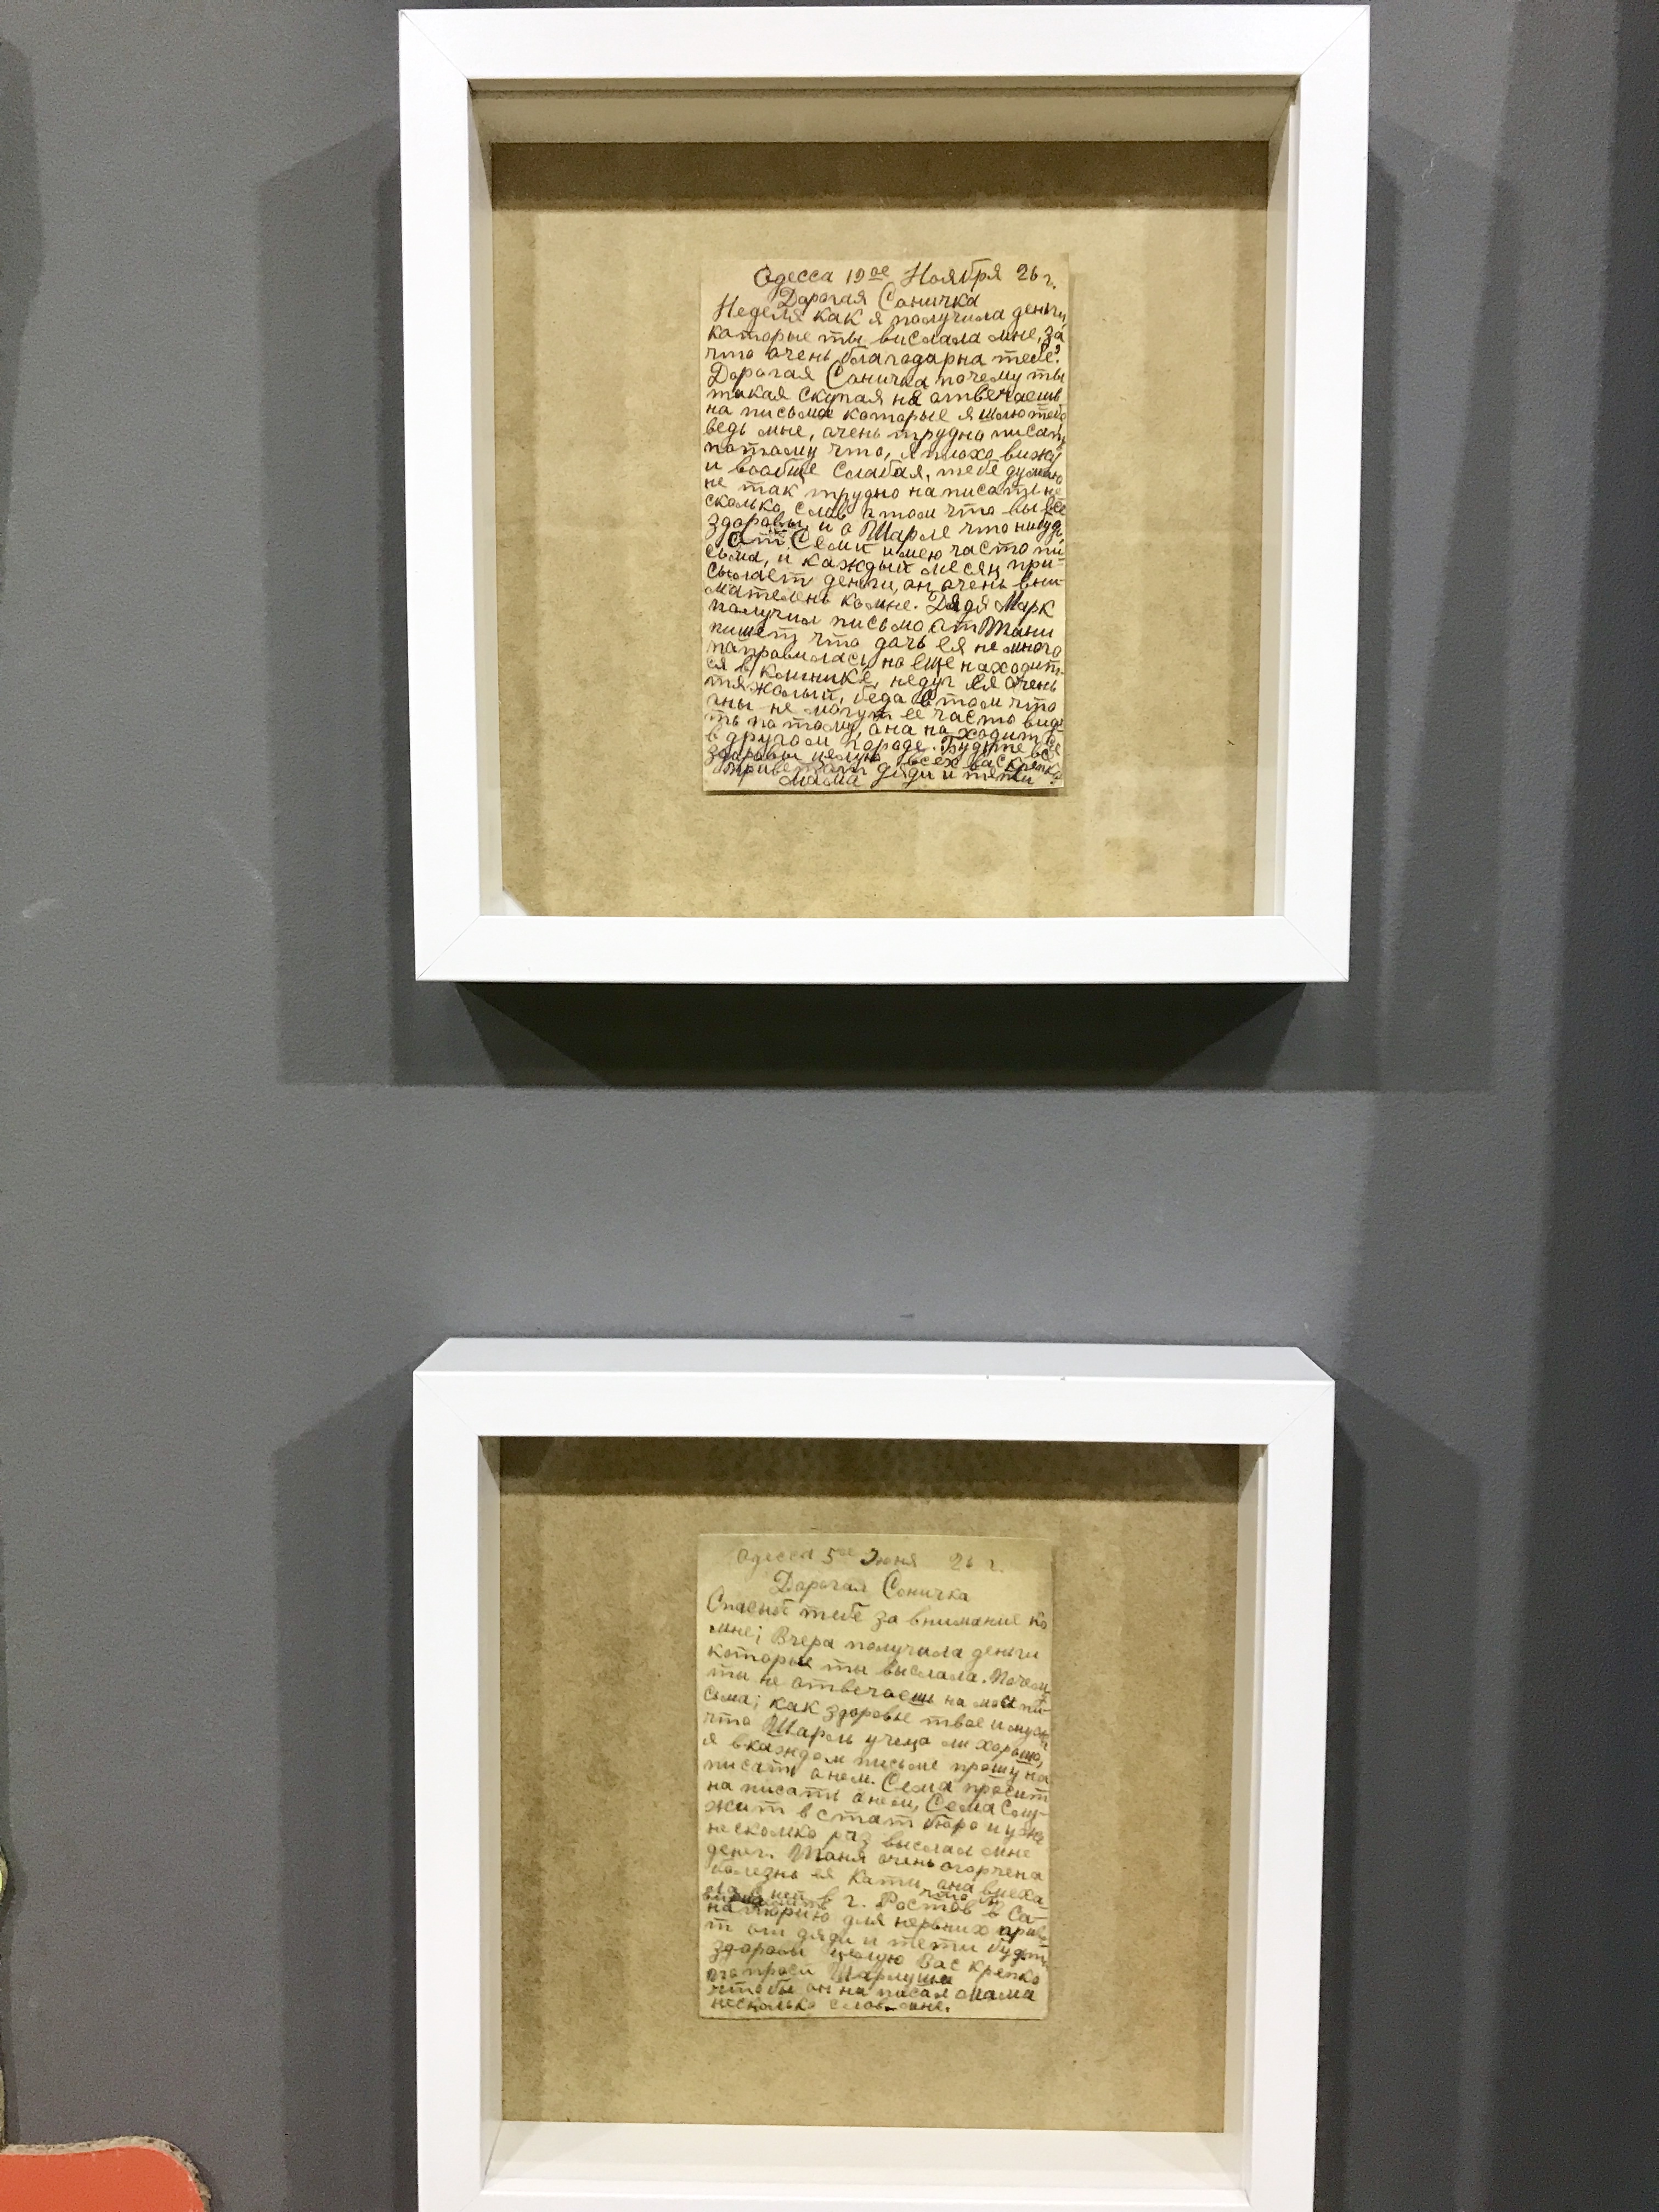 Одесса 19ое Ноября 26 г.
Дорогая Соничка
Неделя как я получила деньги,
которые ты вислала мне, за
что очень благодарна тебе.
Дорогая Соничка почему ты
такая скупая не отвечаешь
на письма которые я шлю тебе
ведь мне, очень трудно писать,
потому что, я плохо вижу
и вообще слабая, тебе думаю
не так трудно написать не
сколько слов о том что вы все
здоровы, и о Шарле что нибудь,
от Семы имею часто пи
сьма, и каждый месяц при-
сылает деньги, он очень вни-
мателень комне. Дядя Марк
получил письмо от Тани
пишет что дочь ея не много
поправилась, но еще находит-
ся в клинике, недуг ея очень
тяжолый, беда в том что
оны не могут ее часто виде
ть потому, она находится
в другом городе. Будьте все
здоровы целую всех вас крепко
привет от дяди и тети
мама
Одесса 5ое Июня 26 г.
Дорогая Соничка
Спасибо тебе за внимание ко
мне; Вчера получила деньги
которые ты выслала. Почему
ты не отвечаеш на мои пи-
сьма; как здоровье твое и мужа
что Шарль учеца ли хорошо,
я вкаждом письме прошу на
писать о нем. Сема просит
на писать онем, Сема слу-
жит в стат бюро и уже
несколко раз выслал мне
денег. Таня очень огорчена
болезнь ея Кати, она виеха
ла с ней в г. Ростов в Са-
наторию для нервних приве
т от дяди и тети будьте
здоровы целую Вас крепко
попроси Шарлуша
чтобы он на писал мама
несколько слов мне.